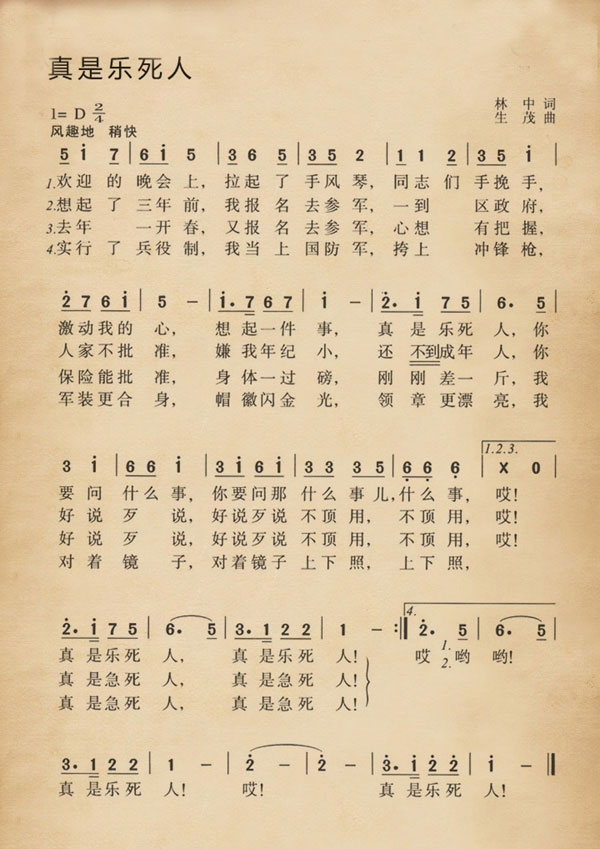 真是乐死人
1= D 2/4
林 中 词
生 茂 曲
风趣地 稍快
5 i 7 | 6 i 5 | 3 6 5 | 3 5 2 | 1 1 2 | 3 5 i |
1.欢迎 的 晚会 上, 拉起 了 手风 琴, 同志 们 手挽 手,
2.想起 了 三年 前, 我报 名 去参 军, 一到 区政 府,
3.去年 一开 春, 又报 名 去参 军, 心想 有把 握,
4.实行 了 兵役 制, 我当 上 国防 军, 挎上 冲锋 枪,
2 7 6 i | 5 - | i. 7 6 7 | i - | 2. i 7 5 | 6. 5 |
激动我的 心, 想 起一件 事, 真 是乐死 人, 你
人家不批 准, 嫌 我年纪 小, 还 不到成年 人, 你
保险能批 准, 身 体一过 磅, 刚 刚差一 斤, 我
军装更合 身, 帽 徽闪金 光, 领 章更漂 亮, 我
1.2.3.
3 i | 6 6 i | 3 i 6 i | 3 3 3 5 | 6 6 6 | X 0 |
要 问 什么 事, 你要问那 什么 事儿, 什么 事, 哎!
好 说 歹 说, 好说歹说 不顶 用, 不顶 用, 哎!
好 说 歹 说, 好说歹说 不顶 用, 不顶 用, 哎!
对 着 镜 子, 对着镜子 上下 照, 上下 照,
4.
2. i 7 5 | 6. 5 | 3. 1 2 2 | 1 - :‖ 2. 5 | 6. 5 |
真 是乐死 人, 真 是乐死 人! 1. 2. 哎 哟 哟!
真 是急死 人, 真 是急死 人!
真 是急死 人, 真 是急死 人!
3. 1 2 2 | 1 - | 2 - | 2 - | 3. i 2 2 | i - ‖
真 是乐死 人! 哎! 真 是乐死 人!